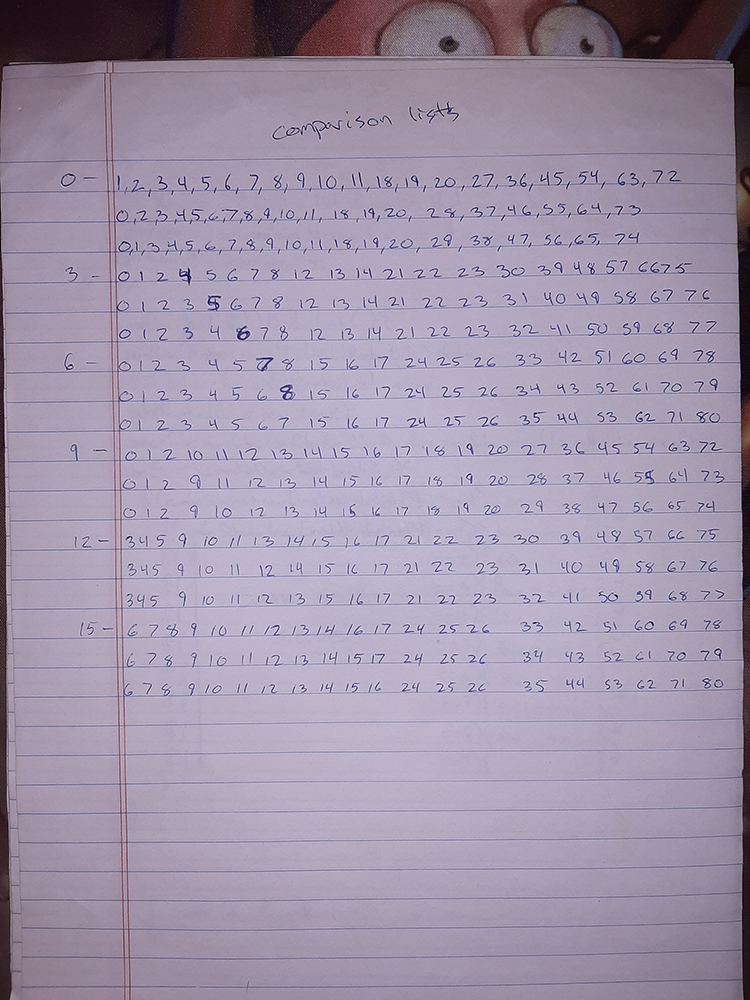 comparison lists
0 - 1, 2, 3, 4, 5, 6, 7, 8, 9, 10, 11, 18, 19, 20, 27, 36, 45, 54, 63, 72
0, 2, 3, 4, 5, 6, 7, 8, 9, 10, 11, 18, 19, 20, 28, 37, 46, 55, 64, 73
0, 1, 3, 4, 5, 6, 7, 8, 9, 10, 11, 18, 19, 20, 29, 38, 47, 56, 65, 74
3 - 0 1 2 4 5 6 7 8 12 13 14 21 22 23 30 39 48 57 66 75
0 1 2 3 5 6 7 8 12 13 14 21 22 23 31 40 49 58 67 76
0 1 2 3 4 6 7 8 12 13 14 21 22 23 32 41 50 59 68 77
6 - 0 1 2 3 4 5 7 8 15 16 17 24 25 26 33 42 51 60 69 78
0 1 2 3 4 5 6 8 15 16 17 24 25 26 34 43 52 61 70 79
0 1 2 3 4 5 6 7 15 16 17 24 25 26 35 44 53 62 71 80
9 - 0 1 2 10 11 12 13 14 15 16 17 18 19 20 27 36 45 54 63 72
0 1 2 9 11 12 13 14 15 16 17 18 19 20 28 37 46 55 64 73
0 1 2 9 10 12 13 14 15 16 17 18 19 20 29 38 47 56 65 74
12 - 3 4 5 9 10 11 13 14 15 16 17 21 22 23 30 39 48 57 66 75
3 4 5 9 10 11 12 14 15 16 17 21 22 23 31 40 49 58 67 76
3 4 5 9 10 11 12 13 15 16 17 21 22 23 32 41 50 59 68 77
15 - 6 7 8 9 10 11 12 13 14 16 17 24 25 26 33 42 51 60 69 78
6 7 8 9 10 11 12 13 14 15 17 24 25 26 34 43 52 61 70 79
6 7 8 9 10 11 12 13 14 15 16 24 25 26 35 44 53 62 71 80